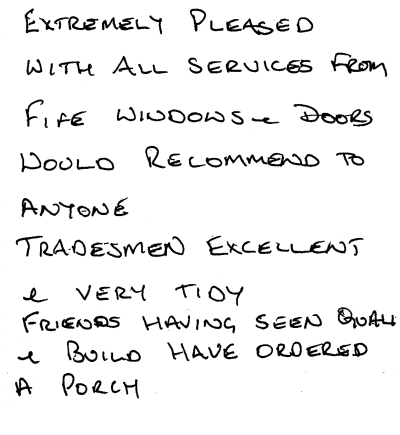 EXTREMELY PLEASED
WITH ALL SERVICES FROM
FIFE WINDOWS & DOORS
WOULD RECOMMEND TO
ANYONE
TRADESMEN EXCELLENT
& VERY TIDY
FRIENDS HAVING SEEN QUALI
& BUILD HAVE ORDERED
A PORCH